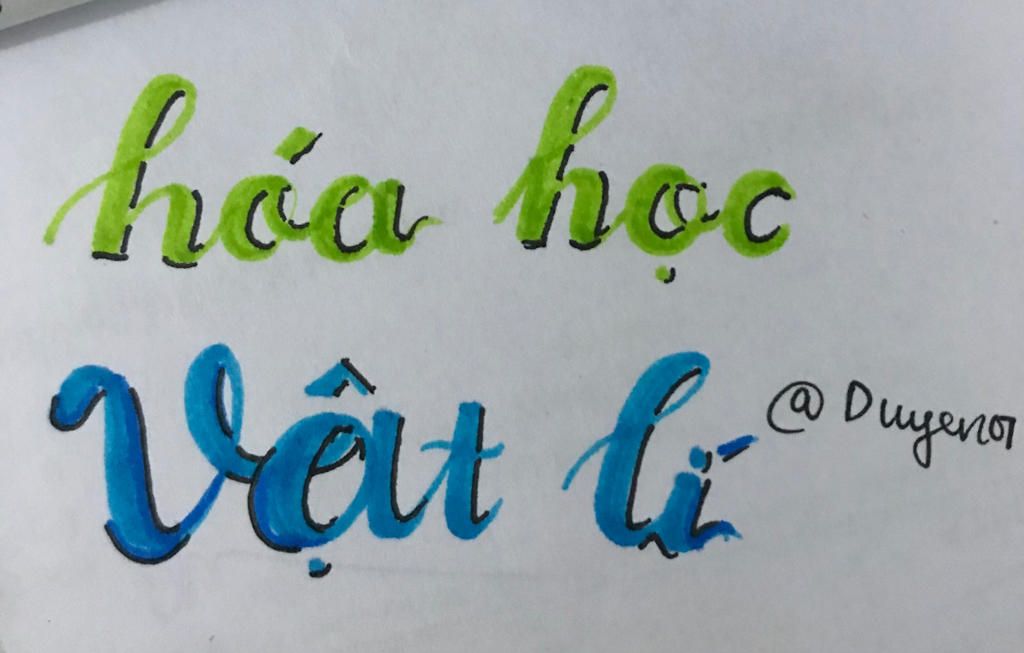 hóa học
Vật lí
@Duyen01